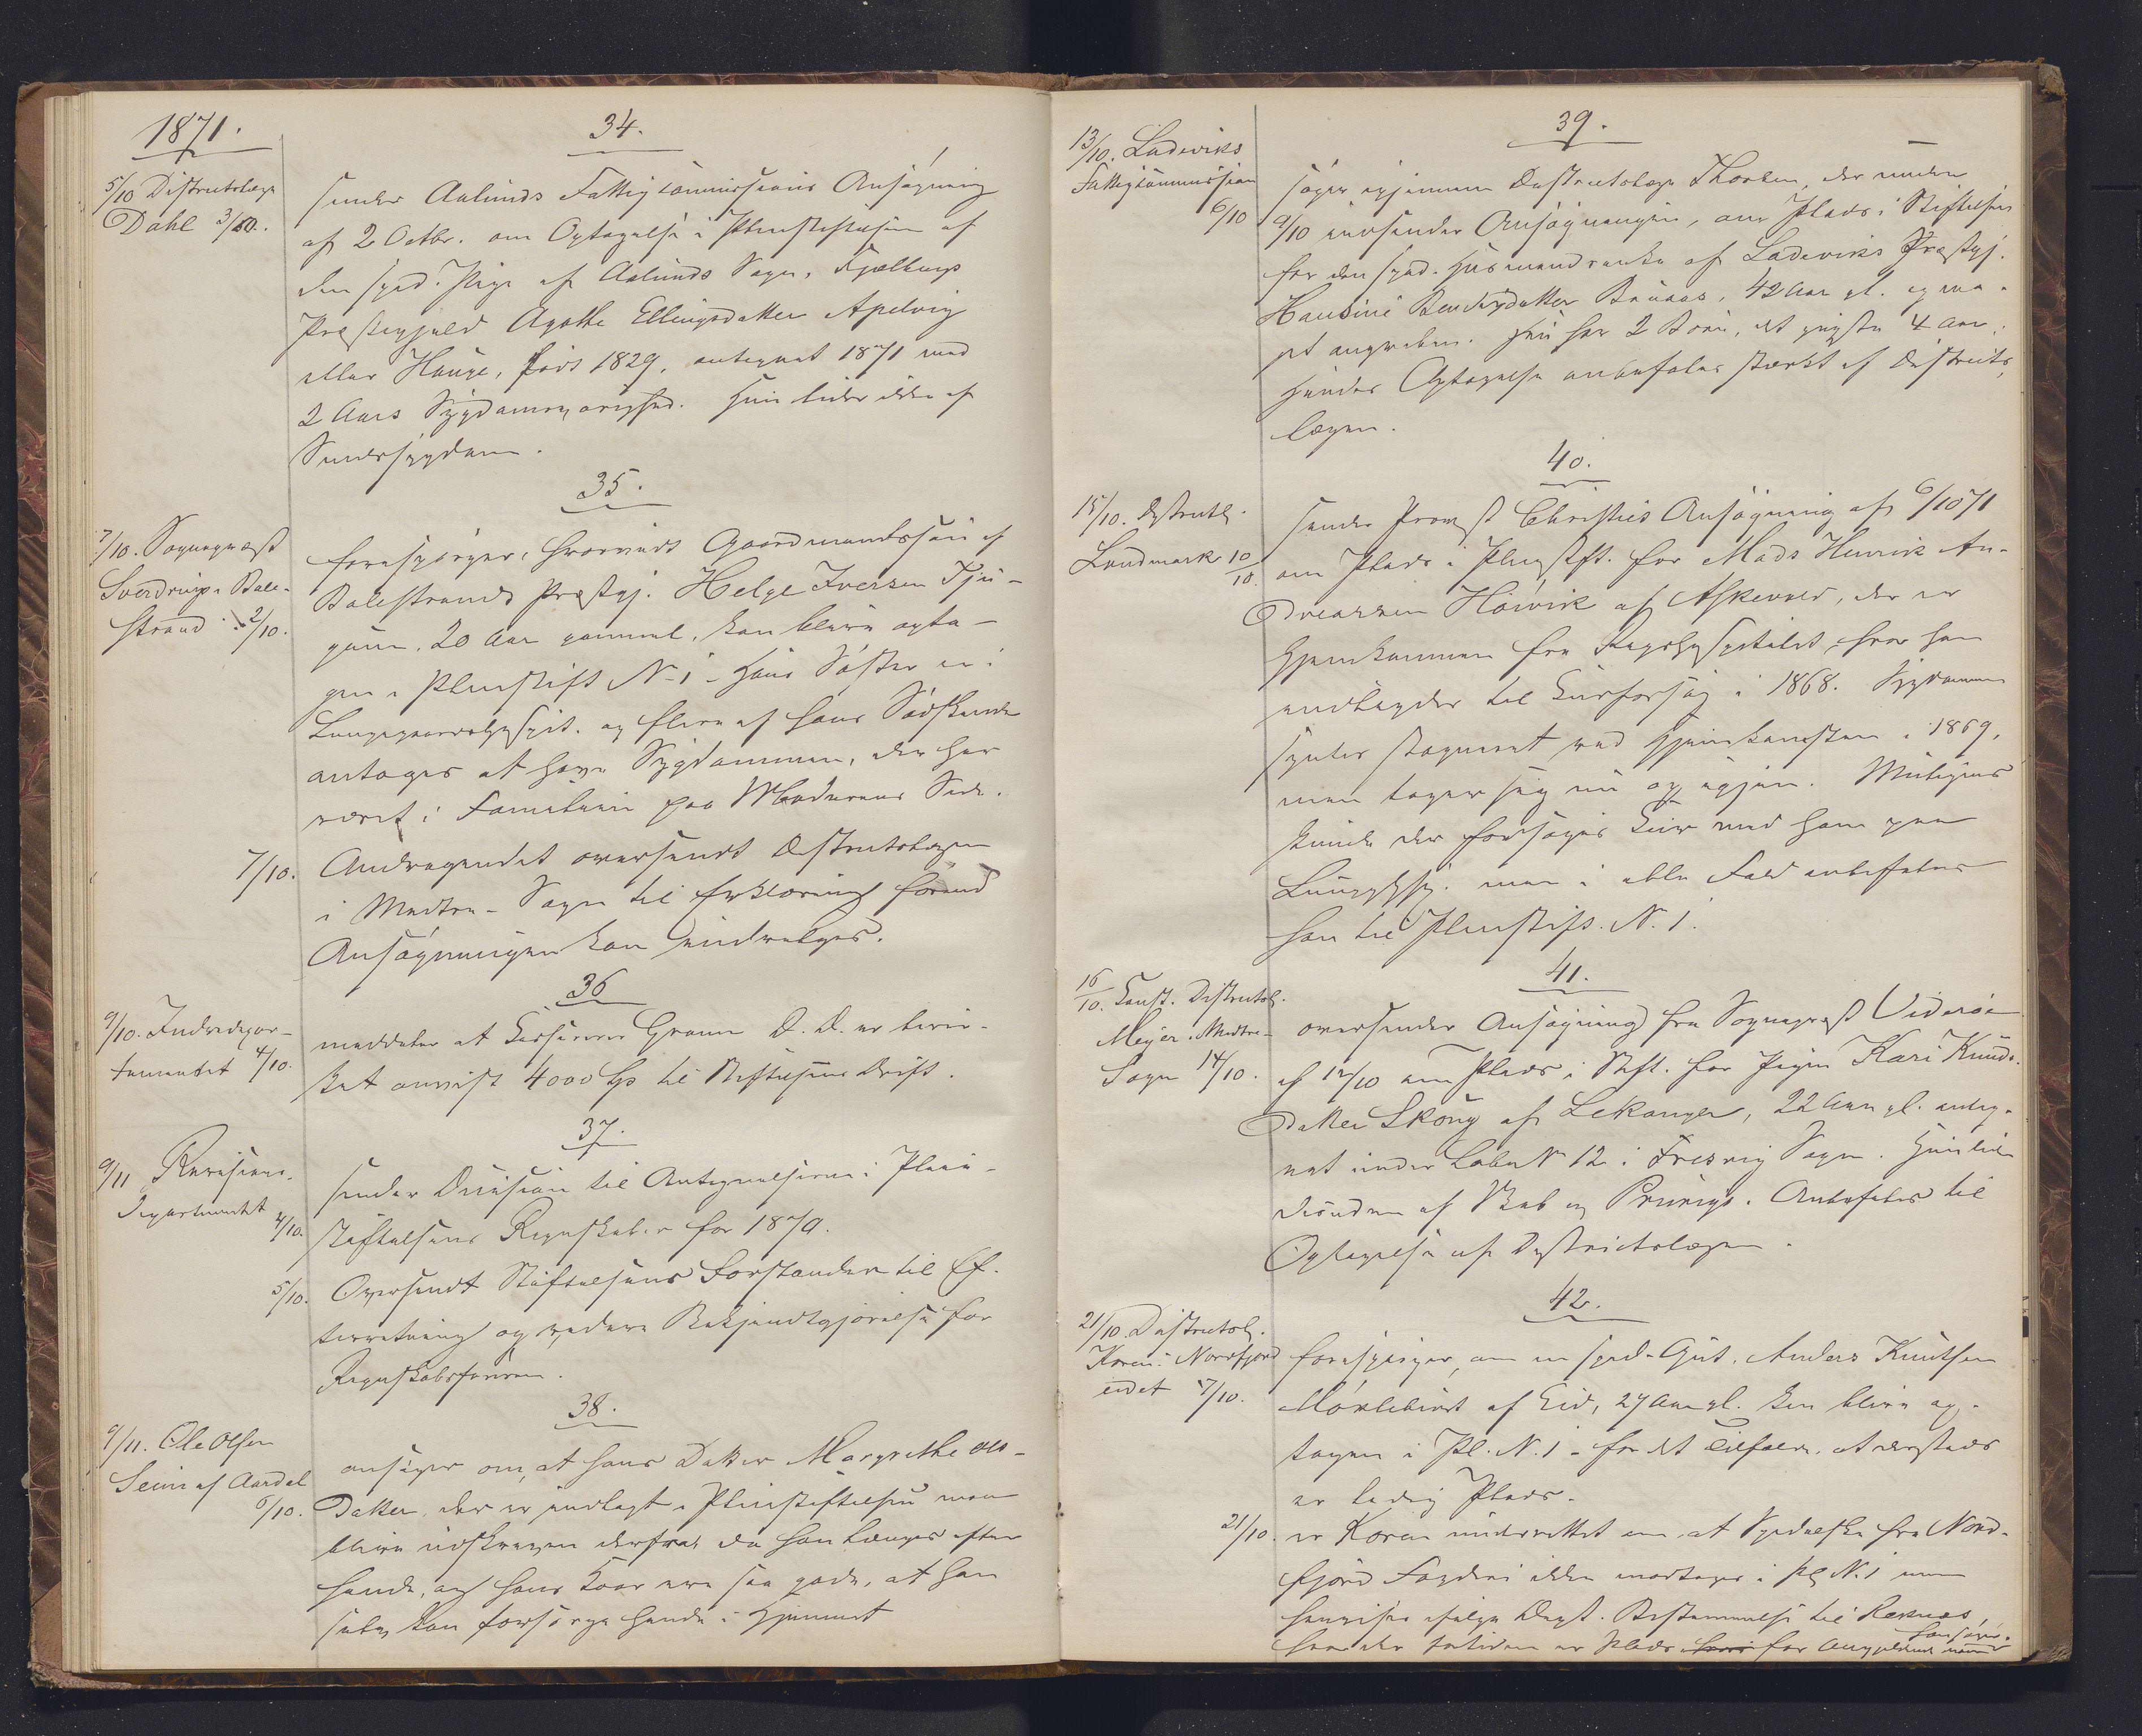 1871.
34.
5/10 Districtslæge
Dahl 3/10.
sender Aalunds Fattigcommissions Ansøgning
af 2 Octbr. om Optagelse i Pleiestiftelsen af
den spedalske Pige af Aalunds Sogn, Fjelbergs
Præstegjeld Agathe Ellingsdatter Apelvig
eller Hauge, født 1829, antegnet 1871 med
2 Aars Sygdomsvarighed. Hun lider ikke af
Sindssygdom.
35.
7/10. Sognepræst
Sverdrup i Bale-
strand 2/10.
forespørger, hvorvidt Gaardmandssøn af
Balestrands Præstgj. Helge Iversen Tju-
gum, 20 Aar gammel, kan blive opta-
gen i Pleiestift N. 1 - Hans Søster er i
Lungegaardshospit. og flere af hans Sødskende
antages at have Sygdommen, der har
været i Familien paa Moderens Side.
7/10. Andragendet oversendt Districtslægen
i Midtre-Sogn til Erklæring førend
Ansøgningen kan indvilges.
36
9/10. Indredepar-
tementet 4/10.
meddeler at Kasserer Gram D. D. er bevir-
ket anvist 4000 Sp til Stiftelsens Drift.
37.
9/11 Revisions-
Departementet
4/10.
sender Decision til Antegnelserne i Pleie-
stiftelsens Regnskaber for 1870.
5/10. Oversendt Stiftelsens Forstander til Ef-
terretning og videre Bekjendtgjørelse for
Regnskabsføreren.
38.
9/11. Ole Olsen
Seim af Aardal
6/10.
ansøger om, at hans Datter Margrethe Ols-
Datter, der er indlagt i Pleiestiftelsen maa
blive udskreven derfra, da han længes efter
hende, og hans Kaar ere saa gode, at han
selv kan forsørge hende i Hjemmet
39.
13/10. Ladeviks
Fattigcommission
6/10
søger igjennem Districtslæge Thorsen, der under
9/10 indsender Ansøgningen, om Plads i Stiftelsen
for den sped. Husmandsenke af Ladeviks Præstgj.
Hansine Bendixdatter Brunaas, 42 Aar gl. og me-
get angreben. Hun har 2 Børn, det yngste 4 Aar.
Hendes Optagelse anbefales stærkt af Districts
lægen.
40.
15/10. Distrikts.
Landmark 10/10.
sender Provst Christies Ansøgning af 6/10 71
om Plads i Pleiestift. for Mads Henrik An-
dreassen Höivik af Askevold, der er
hjemkommen fra Reknæshospitalet, hvor han
indlagdes til Kurforsøg i 1868. Sygdommen
syntes stagneret ved Hjemkomsten i 1869,
men tager sig nu op igjen. Muligens
kunde der forsøges Kur med ham paa
Lunggdhsp. men i alle Fald anbefales
han til Pleiestift. N. 1.
41.
16/10. Const. Districtsl.
Meyer i Midtre-
Sogn 14/10.
oversender Ansøgning fra Sognepræst Viderøe
af 12/10 om Plads i Stift. for Pigen Kari Knuds-
datter Skoug af Lekanger, 22 Aar gl. anteg-
net under Løbe N 12 i Fresvig Sogn. Hun lider
desuden af Skab og Prurigo. Anbefales til
Optagelse af Districtslægen.
42.
21/10. Districtsl.
Koren i Nordfjord
eidet 17/10.
forespørger, om en sped. Gut, Anders Knutsen
Mørlebust af Eid, 27 Aar gl. kan blive op-
tagen i Pl. N. 1 - for det Tilfælde, at dersteds
er ledig Plads.
21/10. er Koren underrettet om, at Spedalske fra Nord-
fjord Fogderi ikke modtages i Pl. N. 1 men
henvises ifølge Dept. Bestemmelse til Reknæs,
hvor der for tiden er Plads for Angjeldende